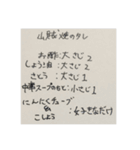 山賊焼のタレ
お酒：大さじ2
しょうゆ：大さじ2
さとう：大さじ1
中華スープのもと：小さじ1
にんにくチューブ
こしょう：好きなだけ